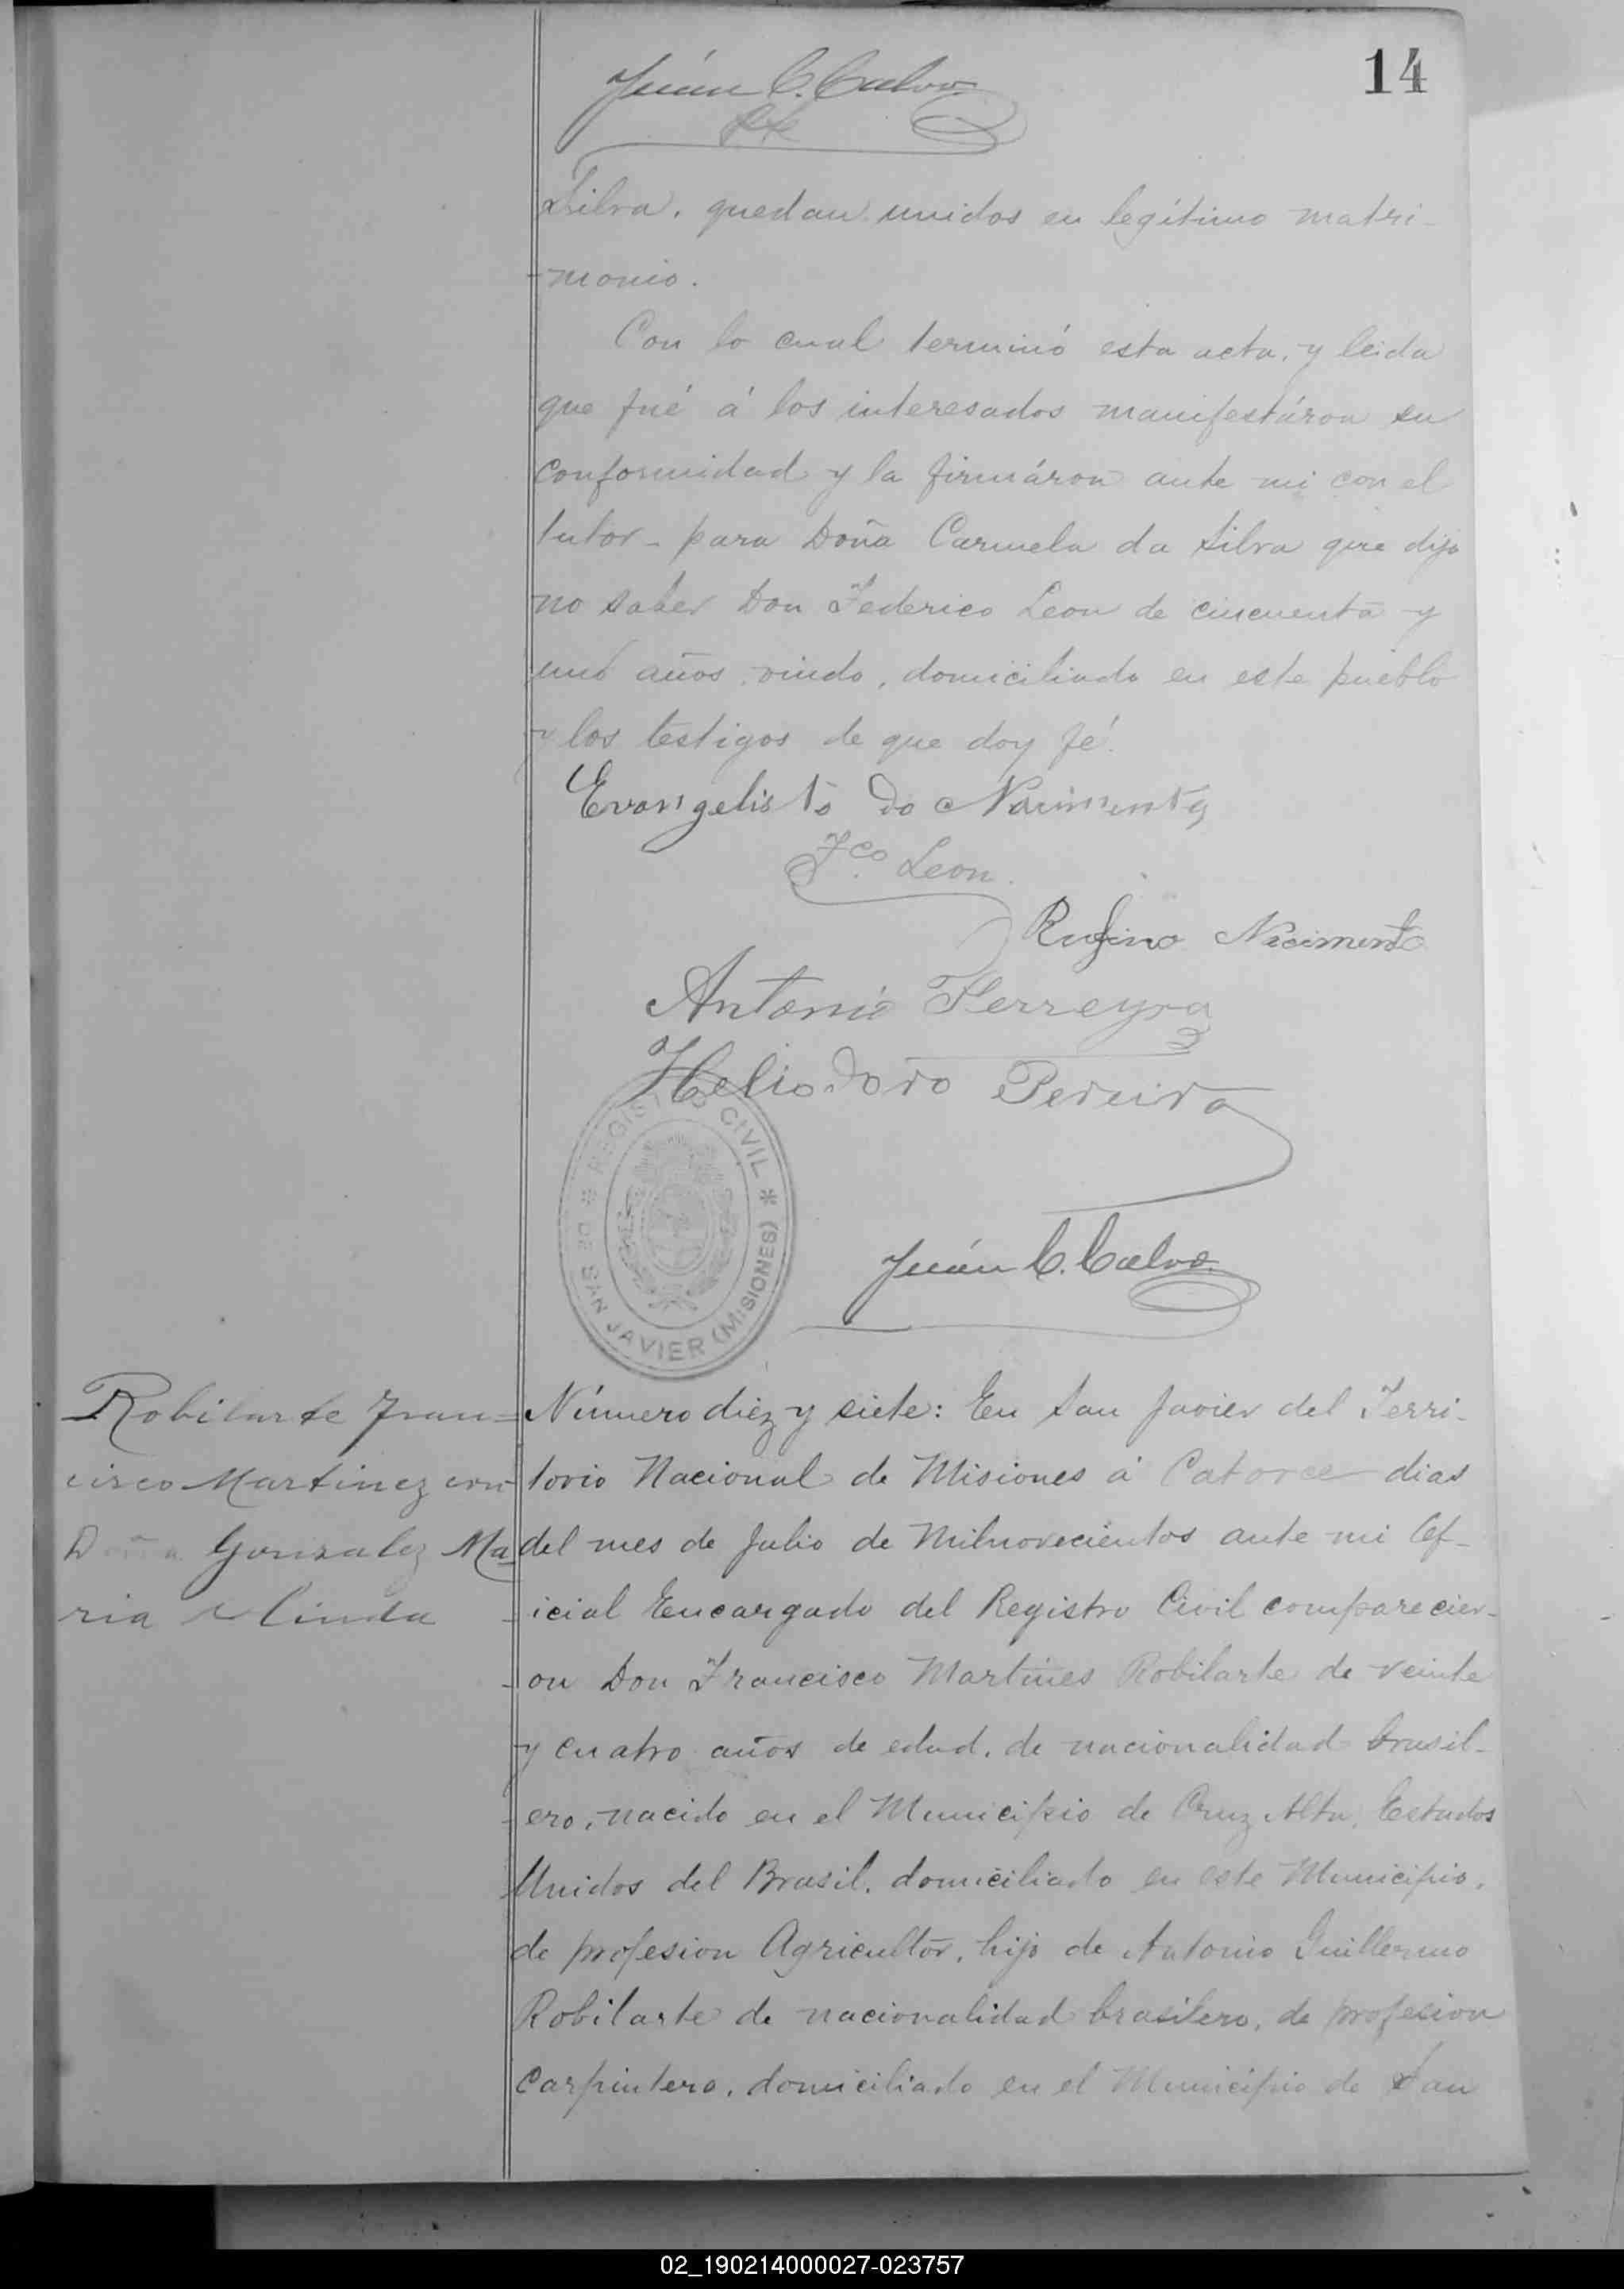 14
Juán C. Calvo
Silva, quedan unidos en legítimo matri-
monio.
Con lo cual terminó esta acta, y leida
que fué á los interesados manifestáron su
conformidad y la firmáron ante mi con el
tutor - para Doña Carmela da Silva que dijo
no saber Don Federico Leon de cincuenta y
uno años, viudo, domiciliado en este pueblo
y los testigos de que doy fé.
Evangelisto do Nacimento
Fco. Leon.
Rufino Nacimento
Antonio Ferreyra
Heliodoro Pereira
REGISTRO CIVIL * DE SAN JAVIER (MISIONES) *
Juán C. Calvo
Robilarte Fran-
cisco Martinez con
Doña Gonzalez Ma-
ria linda
Número diez y siete: En San Javier del Terri-
torio Nacional de Misiones á Catorce dias
del mes de Julio de Milnovecientos ante mi Of-
icial Encargado del Registro Civil comparecier-
on Don Francisco Martines Robilarte de veinte
y cuatro años de edad, de nacionalidad brasil-
ero, nacido en el Municipio de Cruz Alta, Estados
Unidos del Brasil, domiciliado en este Municipio,
de profesion Agricultor, hijo de Antonio Guillermo
Robilarte de nacionalidad brasilero, de profesion
Carpintero, domiciliado en el Municipio de San
02_190214000027-023757